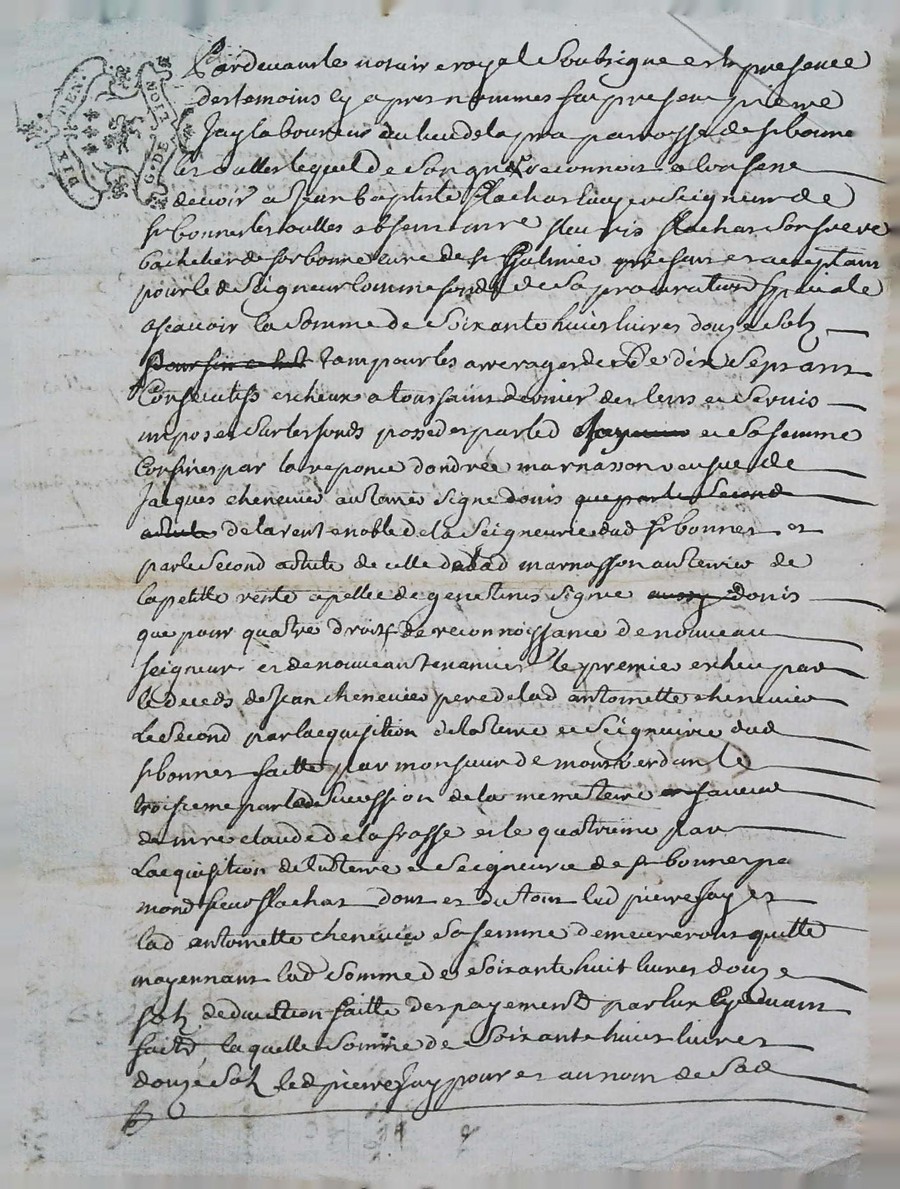 DIX DEN. G. DE LION
Pardevant le notaire royal Soubsigne et en presence
des temoins cy apres nommes fut present pierre
Jay laboureur du lieu de la pra paroisse de st bonne
les oulles lequel de son gre reconnoit et confesse
devoir a Jean baptiste flachat Seigneur de
st bonnet les oulles absent mre fleuris flachat Son frere
bachelier de sorbonne cure de st Galmier present et acceptant
pour led Seigneur comme fonde de Sa procuration Speciale
ascavoir la Somme de Soixante huict livres douze Solz
tant pour les arrerages de dix Sept ans
Consecutifs escheux a toussaint dernier des cens et Servis
imposes Sur les fonds possedes par led Jay et Sa femme
Confines par la reponce dandrée marnasson veufve de
Jacques chenevier au terrier Signe donis que par le Second
article de la rente noble de la Seigneurie dud st bonnet et
par le Second article de celle de lad marnasson au terrier de
la petite rente apellee de genetines Signe aussy donis
que pour quatre droits de reconnoissance de nouveau
seigneur et de nouveau tenancier le premier escheu par
le deceds de Jean chenevier pere de lad antoinette chenevier
Le Second par lacquisition de la terre et Seigneurie dud
st bonnet faitte par monsieur de montverdun le
troisieme par la Succession de la meme terre en faveur
de mre claude de la frasse et le quatrieme par
Lacquisition de la terre et Seigneurie de st bonnet par
mond sieur flachat dont et du tout led pierre Jay et
lad antoinette chenevier Sa femme demeureront quitte
moyennant lad Somme de Soixante huit livres douze
solz deduction faitte des payements par eux cy devant
faits laquelle Somme de Soixante huict livres
douze Solz led pierre Jay pour et au nom de Sad